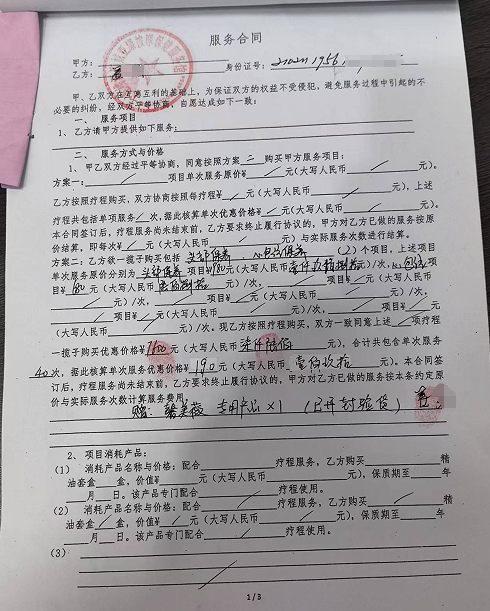 服务合同
甲方：
乙方：
身份证号：
甲、乙双方在互惠互利的基础上，为保证双方的权益不受侵犯，避免服务过程中引起的不
必要的纠纷，经双方平等协商，自愿达成如下一致：
一、 服务项目
1、乙方请甲方提供如下服务：
二、 服务方式与价格
1、甲乙双方经过平等协商，同意按照方案 二 购买甲方服务项目：
方案一： 项目单次服务原价¥ 元（大写人民币 元）。
乙方按照疗程购买，双方协商按照每疗程¥ 元（大写人民币 元），上述
疗程共包括单项服务 次，据此核算单次优惠价格¥ 元（大写人民币 元）。
本合同签订后，疗程服务尚未结束前，乙方要求终止履行协议的，甲方对乙方已做的服务按原
价结算，即每次¥ 元（大写人民币 元）与实际服务次数进行结算。
方案二：乙方欲一揽子购买包括 头部保养 、 （2）个项目，上述项目
单次服务原价分别为 头部保养 项目¥ 元（大写人民币 元）/次， 项
目¥ 元（大写人民币 元）/次， 项目¥ 元（大写人民币
元）/次， 项目¥ 元（大写人民币 元）/次， 项目¥ 元
（大写人民币 元）/次。现乙方按照疗程购买，双方一致同意上述 项疗程
一揽子购买优惠价格¥ 元（大写人民币 元），合计共包含单次服务
40次，据此核算单次服务优惠价格¥ 190 元（大写人民币 壹佰玖拾 元）。本合同签
订后，疗程服务尚未结束前，乙方要求终止履行协议的，甲方对乙方已做的服务按本条约定原
价与实际服务次数计算服务费用
赠： 专用产品×1 （已开封验货）
2、项目消耗产品：
（1） 消耗产品名称与价格：配合 疗程服务，乙方购买 精
油套盒 盒，价值¥ 元（大写人民币 元），保质期至 年
月 日。该产品专门配合 疗程使用。
（2） 消耗产品名称与价格：配合 疗程服务，乙方购买 精
油套盒 盒，价值¥ 元（大写人民币 元），保质期至 年
月 日。该产品专门配合 疗程使用。
（3）
1/3